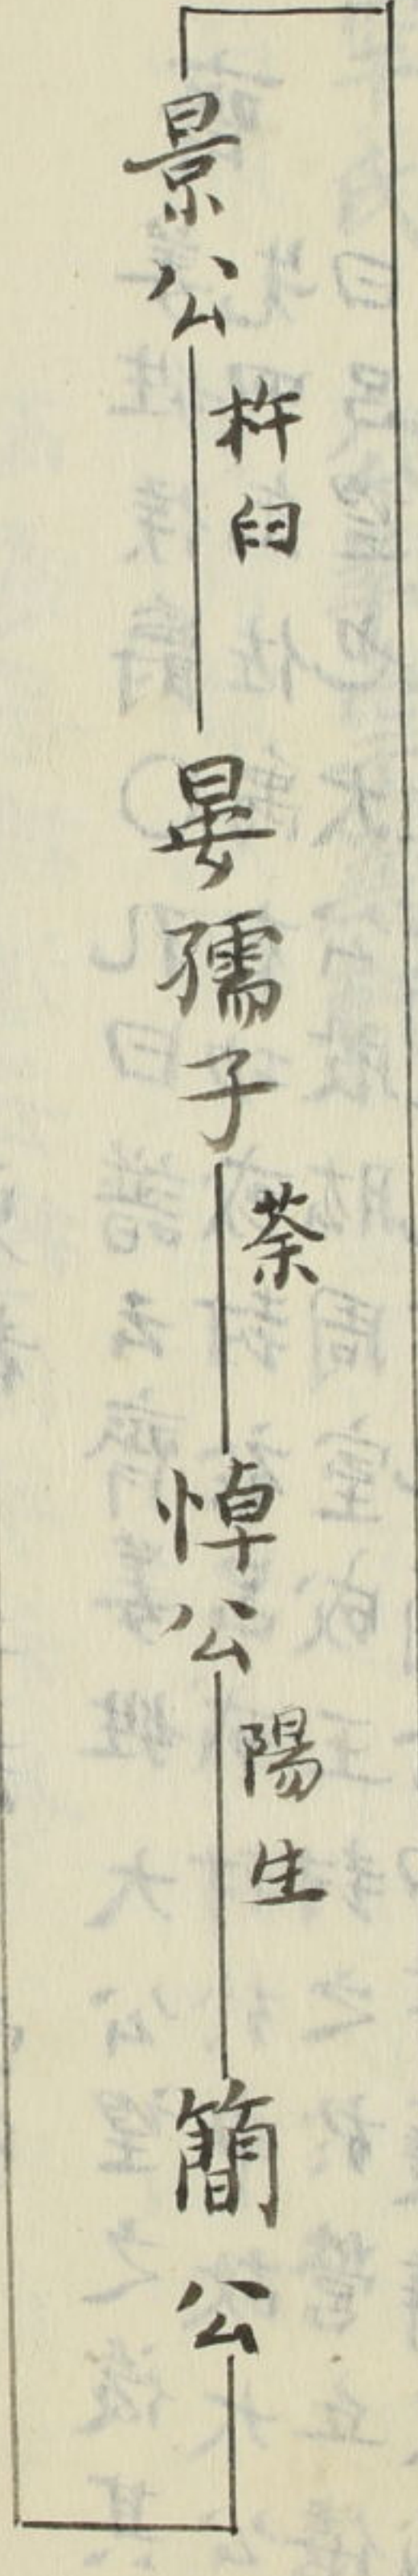 景公
杵臼
晏孺子
荼
悼公
陽生
簡公